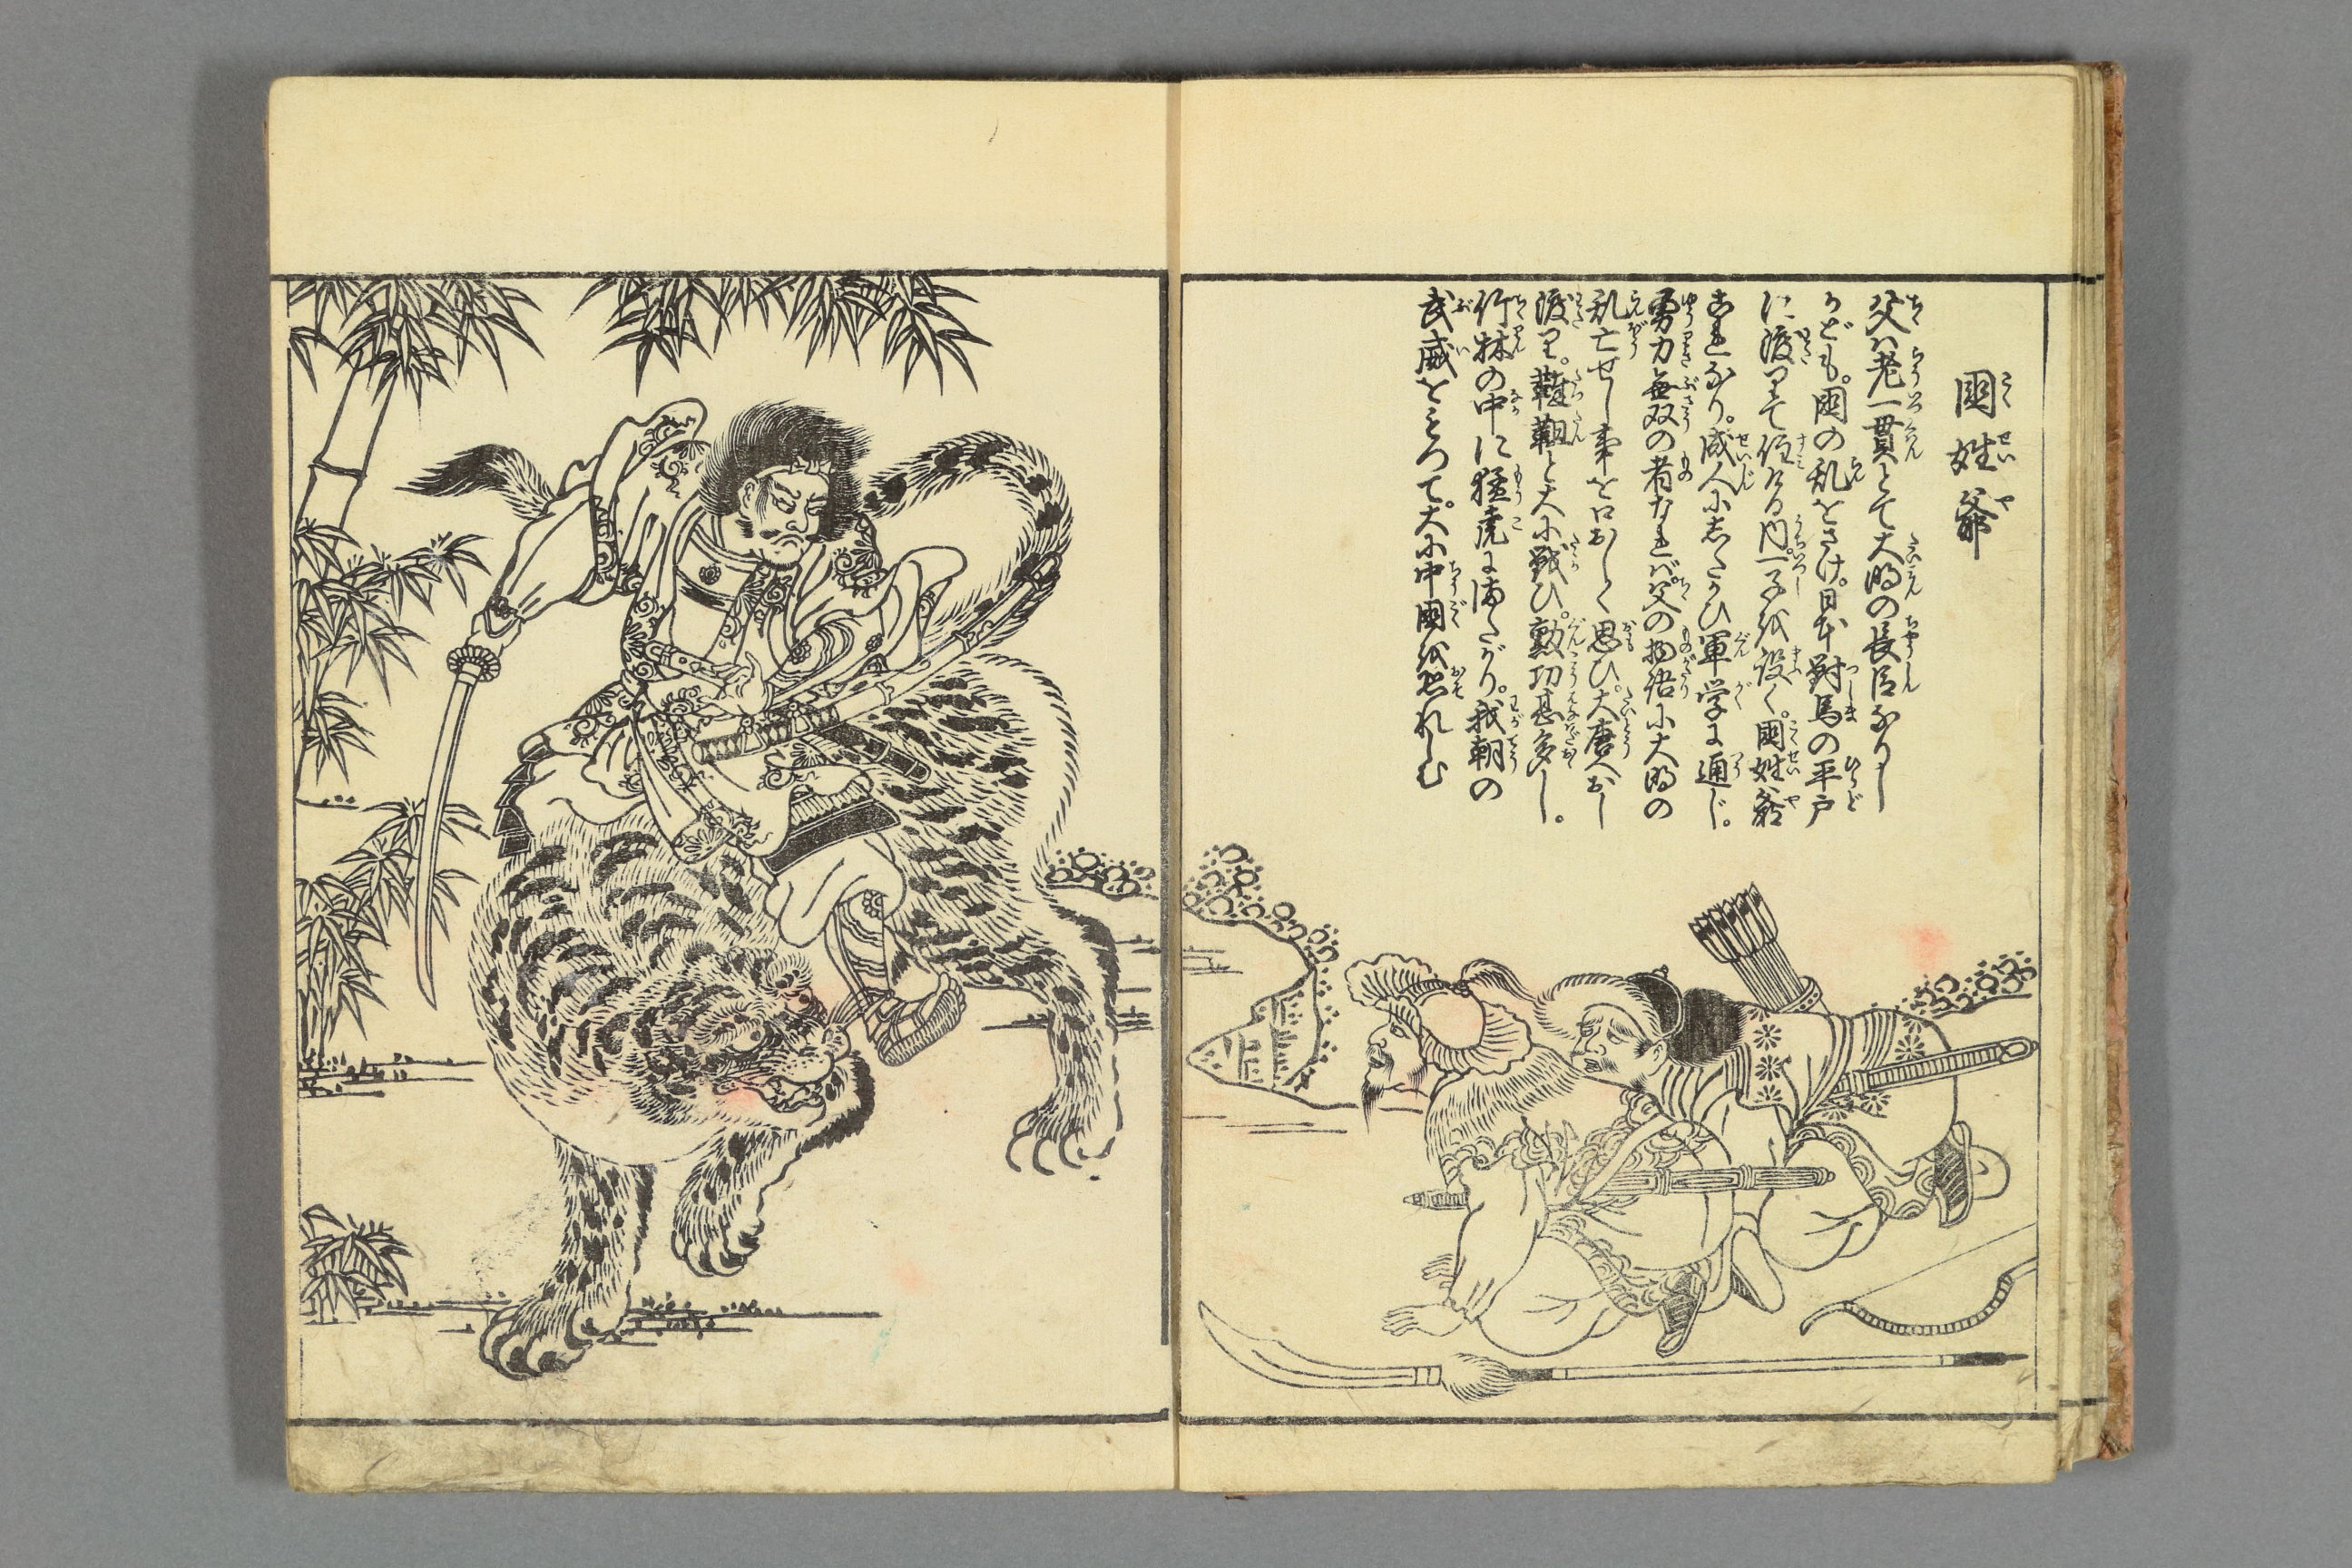 國姓爺
父ハ老一貫とて大明の長臣なりし
かども。国の乱をさけ。日本對馬の平戸
に渡りて住ける内。一子を設く。國姓爺
これなり。成人にしたがひ軍学に通じ。
勇力無双の者なれバ。父の物語に大明の
乱亡せし事を口おしく思ひ。大唐へおし
渡り。韃靼と大に戦ひ。勲功甚多し。
竹林の中に猛虎にまたがり。我朝の
武威をもつて。大に中國を恐れしむ